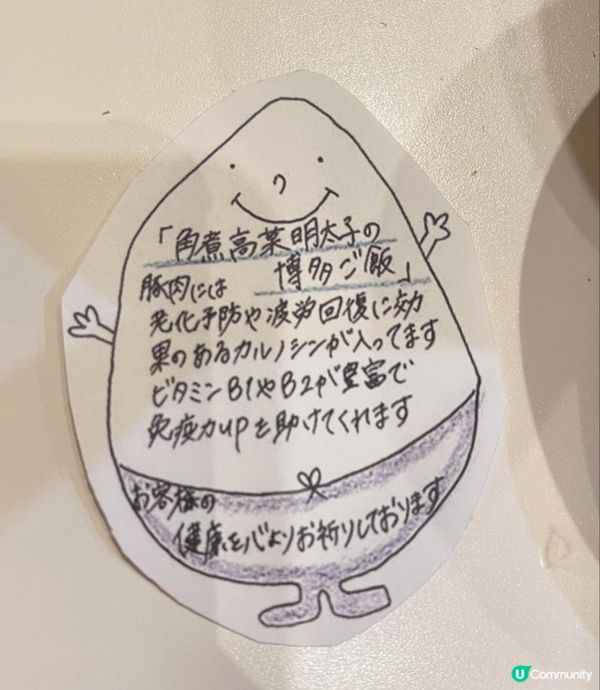 「角煮高菜明太子の
博多ご飯」
豚肉には
老化予防や疲労回復に効
果のあるカルノシンが入ってます
ビタミンB1やB2が豊富で
免疫力upを助けてくれます
お客様の
健康を心よりお祈りしております
U Community